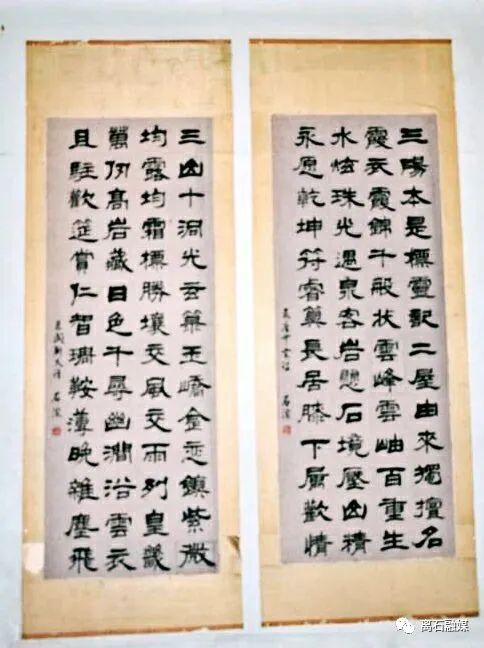 三陽本是標靈記二室由來獨擅名
霞衣霞錦千般狀雲峰雲岫百重生
水炫珠光遇泉客岩懸石境壓山精
永愿乾坤符睿算長居膝下屬歡情
三山十洞光玄籙玉嶠金巒鎮紫微
均露均霜標勝壤交風交雨列皇畿
萬仞高岩藏日色千尋幽澗浴雲衣
且駐歡筵賞仁智琱鞍薄晚雜塵飛
离石融媒